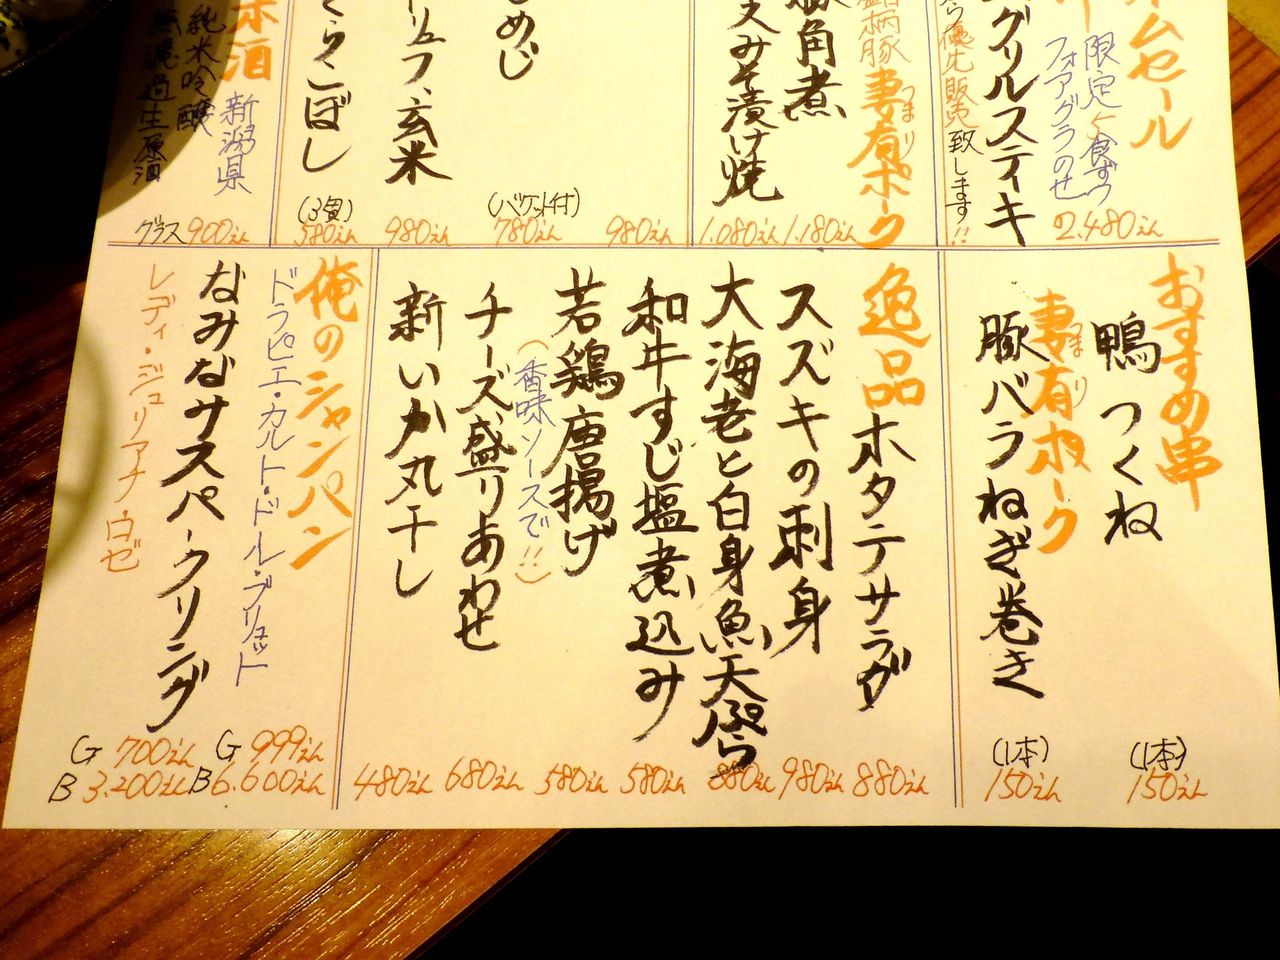 ムセール
限定5食ずつ
フォアグラのせ
2.480えん
グリルステーキ
優先販売致します!!
妻有ポーク
つまり
銘柄豚
角煮
1.180えん
みそ漬け焼
1.080えん
980えん
めじ
(バケット付)
780えん
リュフ、玄米
980えん
くらこぼし
(3個)
580えん
米酒
新潟県
純米吟醸
無濾過生原酒
グラス 900えん
おすすめ串
鴨つくね
(1本)
150えん
妻有ポーク
つまり
豚バラねぎ巻き
(1本)
150えん
逸品
ホタテサラダ
880えん
スズキの刺身
980えん
大海老と白身魚天ぷら
880えん
和牛すじ塩煮込み
580えん
若鶏唐揚げ
(香味ソースで!!)
580えん
チーズ盛りあわせ
680えん
新いか丸干し
480えん
俺のシャンパン
ドラピエ・カルト・ドール・ブリュット
G 999えん
B 6.600えん
なみなみスパークリング
レディ・ジュリアナ・ロゼ
G 700えん
B 3.200えん